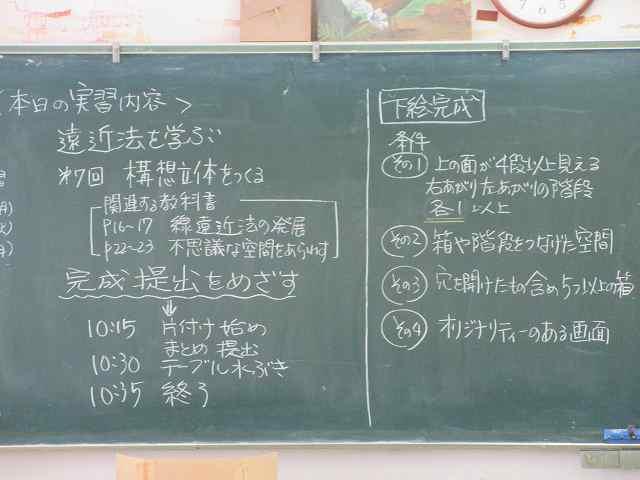 <本日の実習内容>
遠近法を学ぶ
第7回 構想立体をつくる
関連する教科書
P16〜17 線遠近法の発展
P22〜23 不思議な空間をあらわす
完成提出をめざす
10:15 片付け始め
まとめ 提出
10:30 テーブル水ぶき
10:35 終了
下絵完成
条件
その1 上の面が4段以上見える
右あがり左あがりの階段
各1以上
その2 箱や階段をつなげた空間
その3 穴を開けたもの含め5つ以上の箱
その4 オリジナリティーのある画面